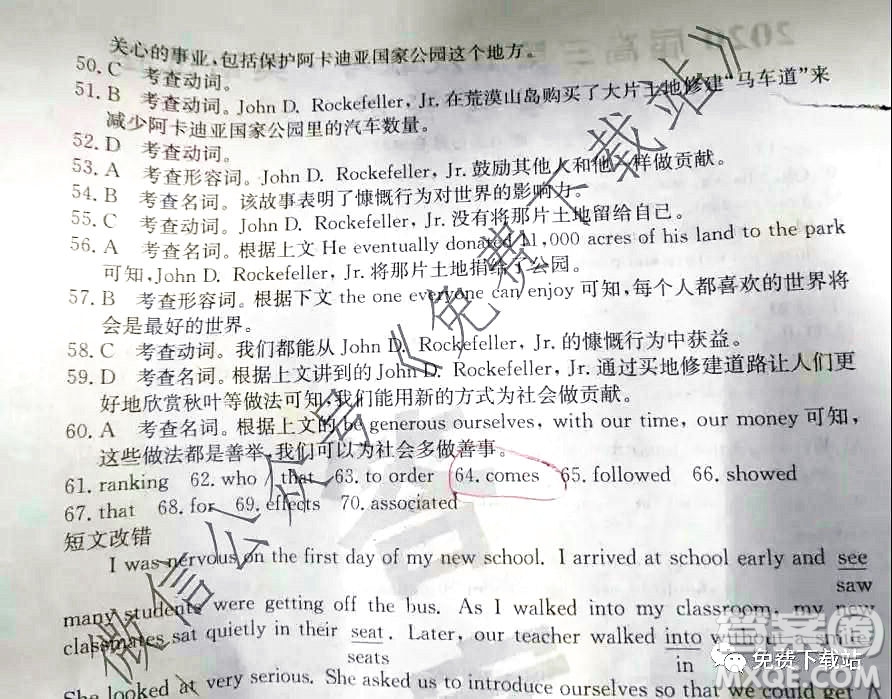 关心的事业,包括保护阿卡迪亚国家公园这个地方。
50. C 考查动词。
51. B 考查动词。John D. Rockefeller, Jr. 在荒漠山岛购买了大片土地修建"马车道"来
减少阿卡迪亚国家公园里的汽车数量。
52. D 考查动词。
53. A 考查形容词。John D. Rockefeller, Jr. 鼓励其他人和他一样做贡献。
54. B 考查名词。该故事表明了慷慨行为对世界的影响力。
55. C 考查动词。John D. Rockefeller, Jr. 没有将那片土地留给自己。
56. A 考查名词。根据上文 He eventually donated 11,000 acres of his land to the park
可知,John D. Rockefeller, Jr. 将那片土地捐给了公园。
57. B 考查形容词。根据下文 the one everyone can enjoy 可知,每个人都喜欢的世界将
会是最好的世界。
58. C 考查动词。我们都能从 John D. Rockefeller, Jr. 的慷慨行为中获益。
59. D 考查名词。根据上文讲到的 John D. Rockefeller, Jr. 通过买地修建道路让人们更
好地欣赏秋叶等做法可知,我们能用新的方式为社会做贡献。
60. A 考查名词。根据上文的 be generous ourselves, with our time, our money 可知,
这些做法都是善举,我们可以为社会多做善事。
61. ranking 62. who / that 63. to order 64. comes 65. followed 66. showed
67. that 68. for 69. effects 70. associated
短文改错
I was nervous on the first day of my new school. I arrived at school early and see
saw
many students were getting off the bus. As I walked into my classroom, my new
classmates sat quietly in their seat. Later, our teacher walked into without a smile
seats in
She looked at very serious. She asked us to introduce ourselves so that we could get
微信公众号《免费下载站》
答案圈
免费下载站